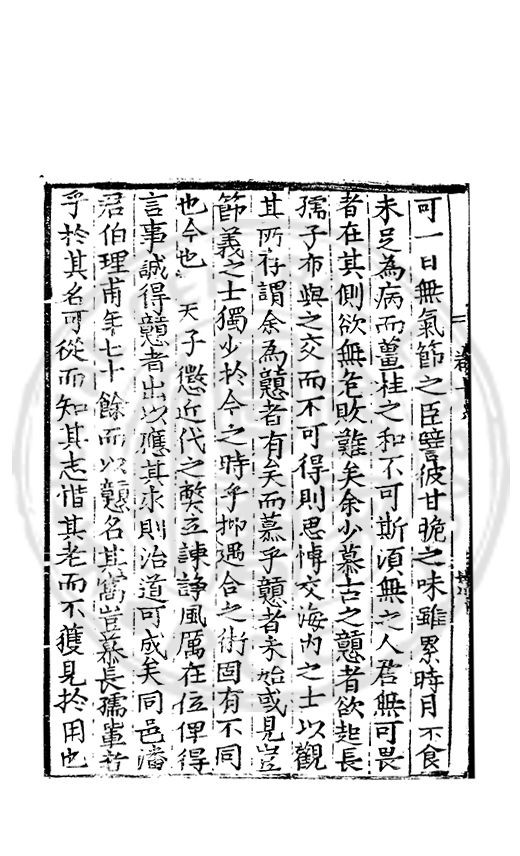 可一日無氣節之臣譬彼甘脆之味雖累時月不食
未足為病而薑桂之和不可斯須無之人君無可畏
者在其側欲無危敗難矣余少慕古之戇者欲起長
孺子布與之交而不可得則思博交海內之士以觀
其所存謂余為戇者有矣而慕乎戇者未始或見豈
節義之士獨少於今之時乎抑遇合之術固有不同
也今也 天子懲近代之獘立諌諍風厲在位俾得
言事誠得戇者出以應其求則治道可成矣同邑潘
君伯理甫年七十餘而以戇名其寓豈慕長孺軰者
乎於其名可從而知其志惜其老而不獲見於用也